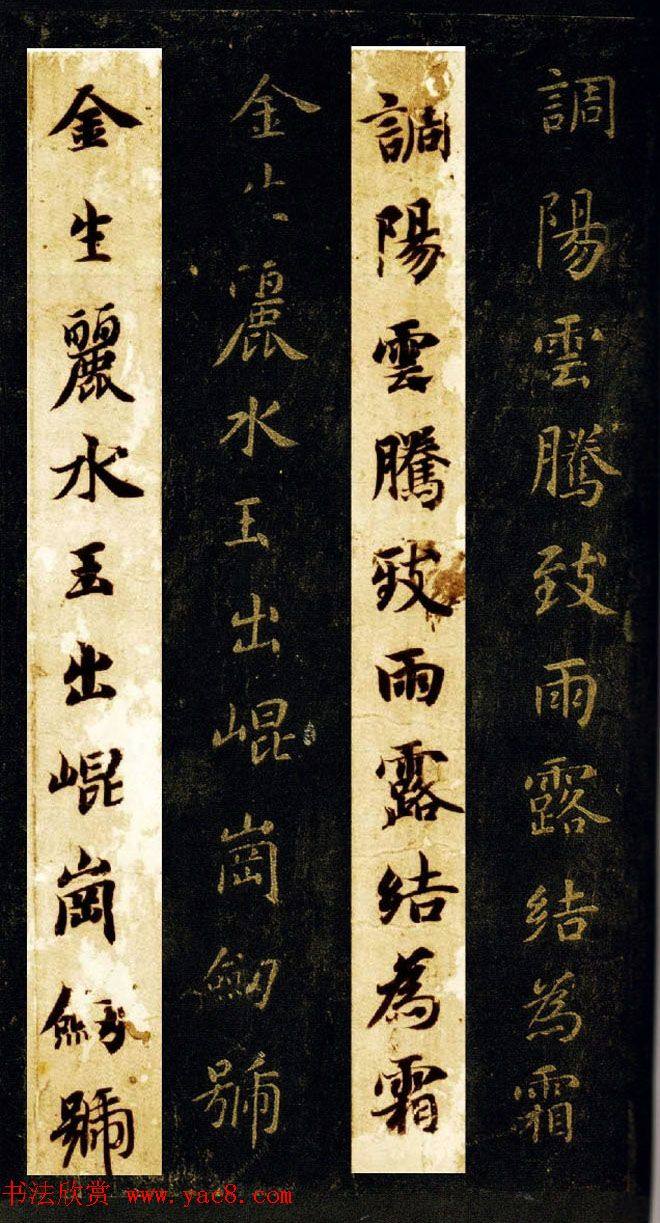 調陽雲騰致雨露結為霜
調陽雲騰致雨露結為霜
金生麗水玉出崐崗劒號
金生麗水玉出崐崗劒號
书法欣赏 www.yac8.com